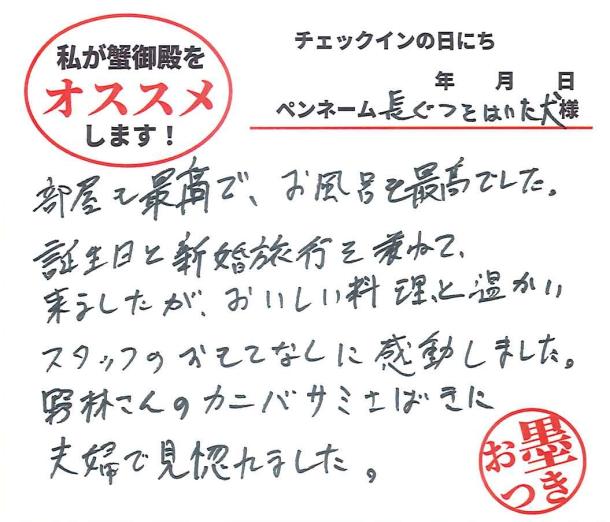 私が蟹御殿を
オススメ
します！
チェックインの日にち
年 月 日
ペンネーム 長ぐつをはいた犬 様
部屋も最高で、お風呂も最高でした。
誕生日と新婚旅行を兼ねて、
来ましたが、おいしい料理と温かい
スタッフのおもてなしに感動しました。
林さんのカニバサミさばきに
夫婦で見惚れました。
お墨
つき